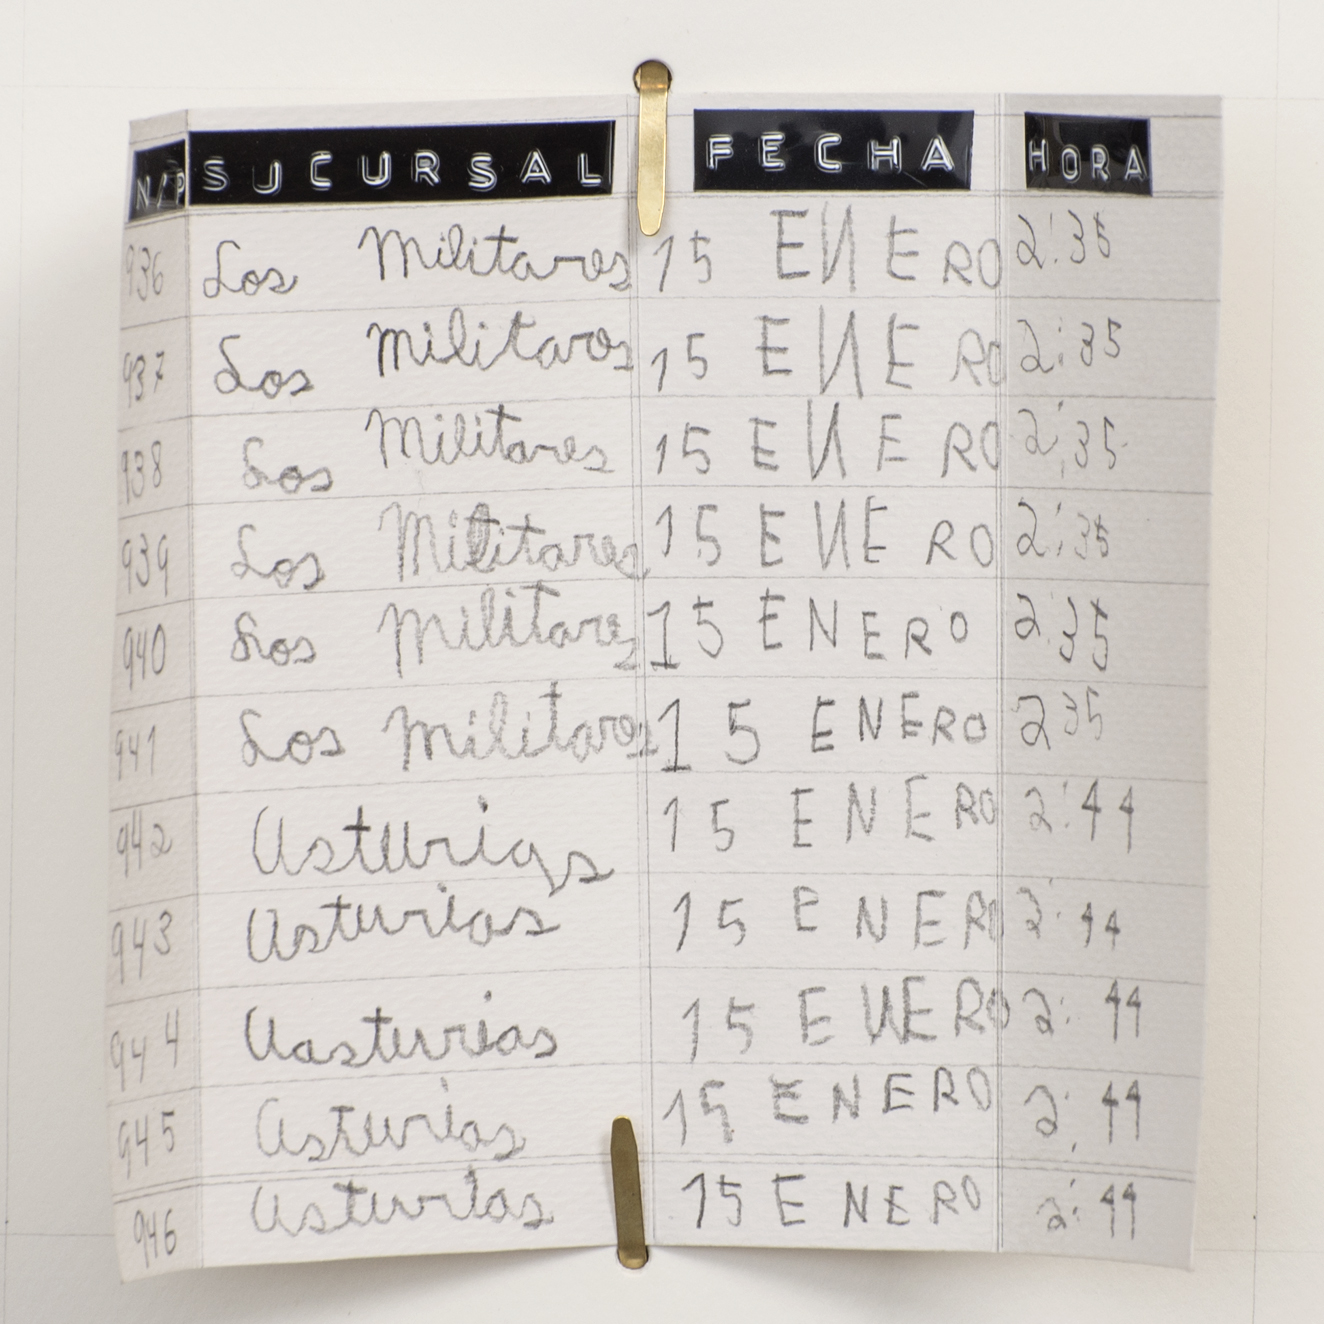 N/P SUCURSAL FECHA HORA
936 Los Militares 15 ENERO 2:35
937 Los Militares 15 ENERO 2:35
938 Los Militares 15 ENERO 2:35
939 Los Militares 15 ENERO 2:35
940 Los Militares 15 ENERO 2:35
941 Los Militares 15 ENERO 2 35
942 Asturias 15 ENERO 2:44
943 Asturias 15 ENERO 2:44
944 Aasturias 15 ENERO 2:44
945 Asturias 15 ENERO 2:44
946 Asturias 15 ENERO 2:44